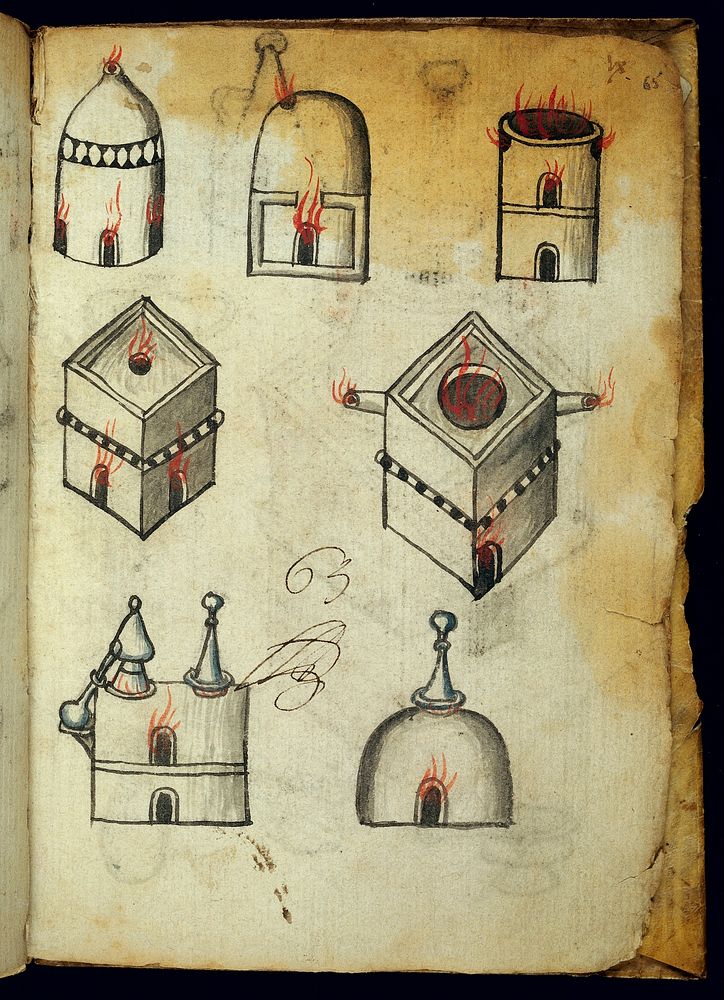 65
63